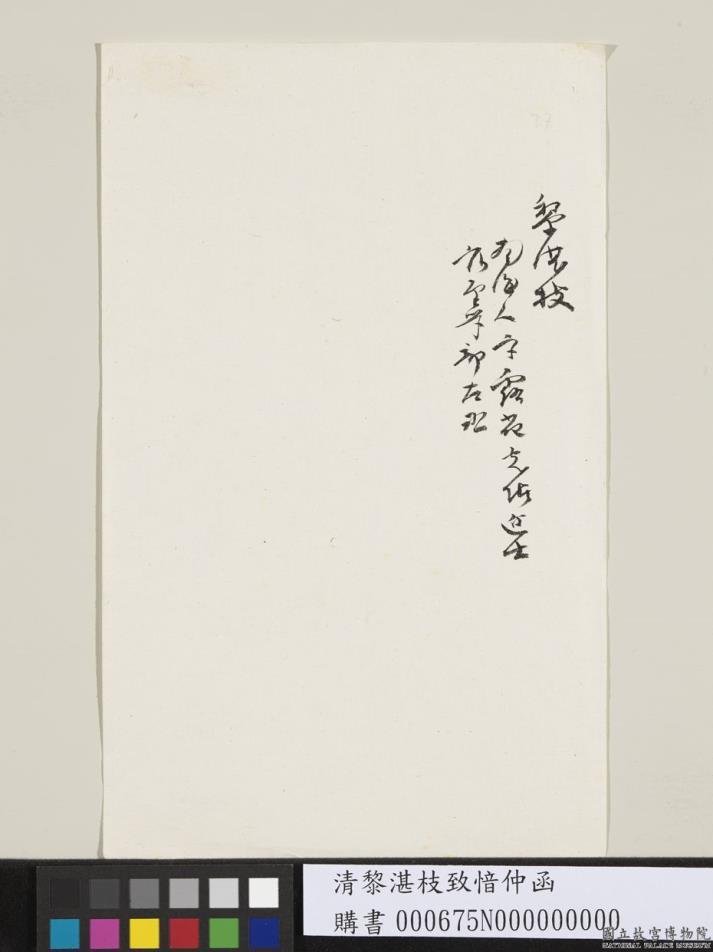 黎湛枝
南海人字露苑光緒進士
官至學部左丞
清黎湛枝致愔仲函
購書 000675N000000000
國立故宮博物院
NATIONAL PALACE MUSEUM